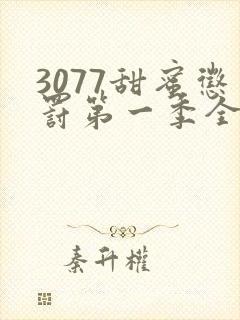 3077甜蜜惩
罚第一季全
秦升权